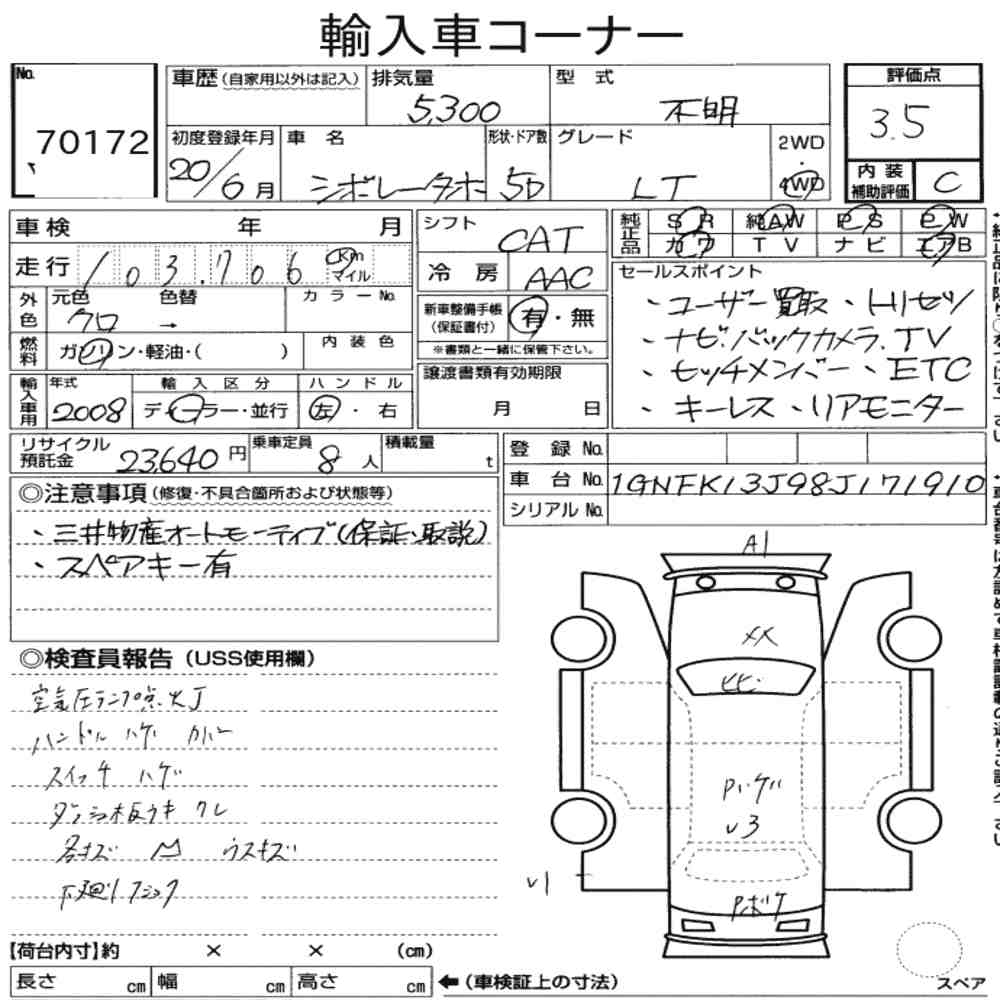 輸入車コーナー
No. 70172
車歴（自家用以外は記入） 排気量 5,300 型式 不明 評価点 3.5
初度登録年月 20/6月 車名 シボレータホ 形状・ドア数 5D グレード LT 2WD・4WD 内装補助評価 C
車検 年 月 シフト CAT 純正品 SR 純AW PS PW
カワ TV ナビ エアB
走行 103,706 Km マイル 冷房 AAC
外色 元色 クロ 色替 → カラーNo. 新車整備手帳（保証書付） 有・無
※書類と一緒に保管下さい。
燃料 ガソリン・軽油・（ ） 内装色
輸入車用 年式 2008 輸入区分 ディーラー・並行 ハンドル 左・右
譲渡書類有効期限 月 日
セールスポイント
・ユーザー買取・HIセツ
・ナビ・バックカメラ・TV
・セッチメンバー・ETC
・キーレス・リアモニター
リサイクル預託金 23,640円 乗車定員 8人 積載量 t
登録No.
車台No. 1GNFK13J98J171910
シリアルNo.
◎注意事項（修復・不具合箇所および状態等）
・三井物産オートモーティブ（保証、取説）
・スペアキー有
◎検査員報告（USS使用欄）
空気圧ランプ点火J
ハンドル ハゲ カバー
スイッチ ハゲ
ダッシュ板ウキ ワレ
各キズ 凹 ウスキズ
下廻りフショク
A1
XX
ヒビ
Pハゲ
U3
Pボケ
U1
スペア
【荷台内寸】約 × × （cm）
長さ cm 幅 cm 高さ cm ←（車検証上の寸法）